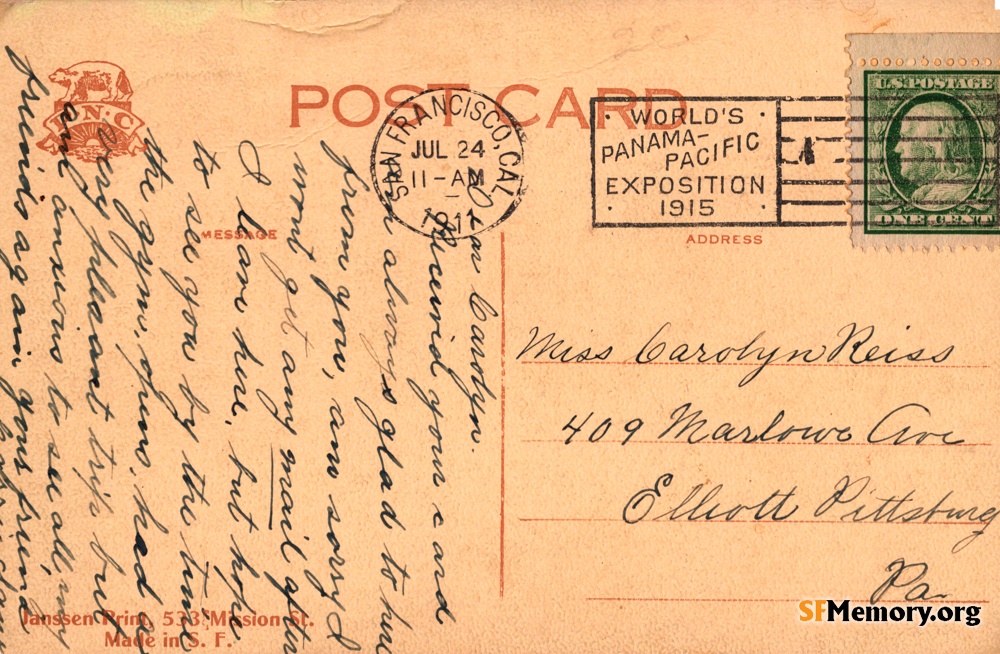 POST CARD
P.N.C
MESSAGE
ADDRESS
SAN FRANCISCO, CAL.
JUL 24
11-AM
1911
WORLD'S
PANAMA-
PACIFIC
EXPOSITION
1915
U.S. POSTAGE
ONE CENT
Dear Carolyn.
Received your card
am always glad to hear
from you, am sorry I
wont get any mail after
I leave here, but hope
to see you by the time
the gym. opens, had a
very pleasant trip but
am anxious to see all my
friends again, your friend
Miss Carolyn Reiss
409 Marlowe Ave
Elliott Pittsburg
Pa.
Janssen Print, 533 Mission St.
Made in S. F.
SFMemory.org